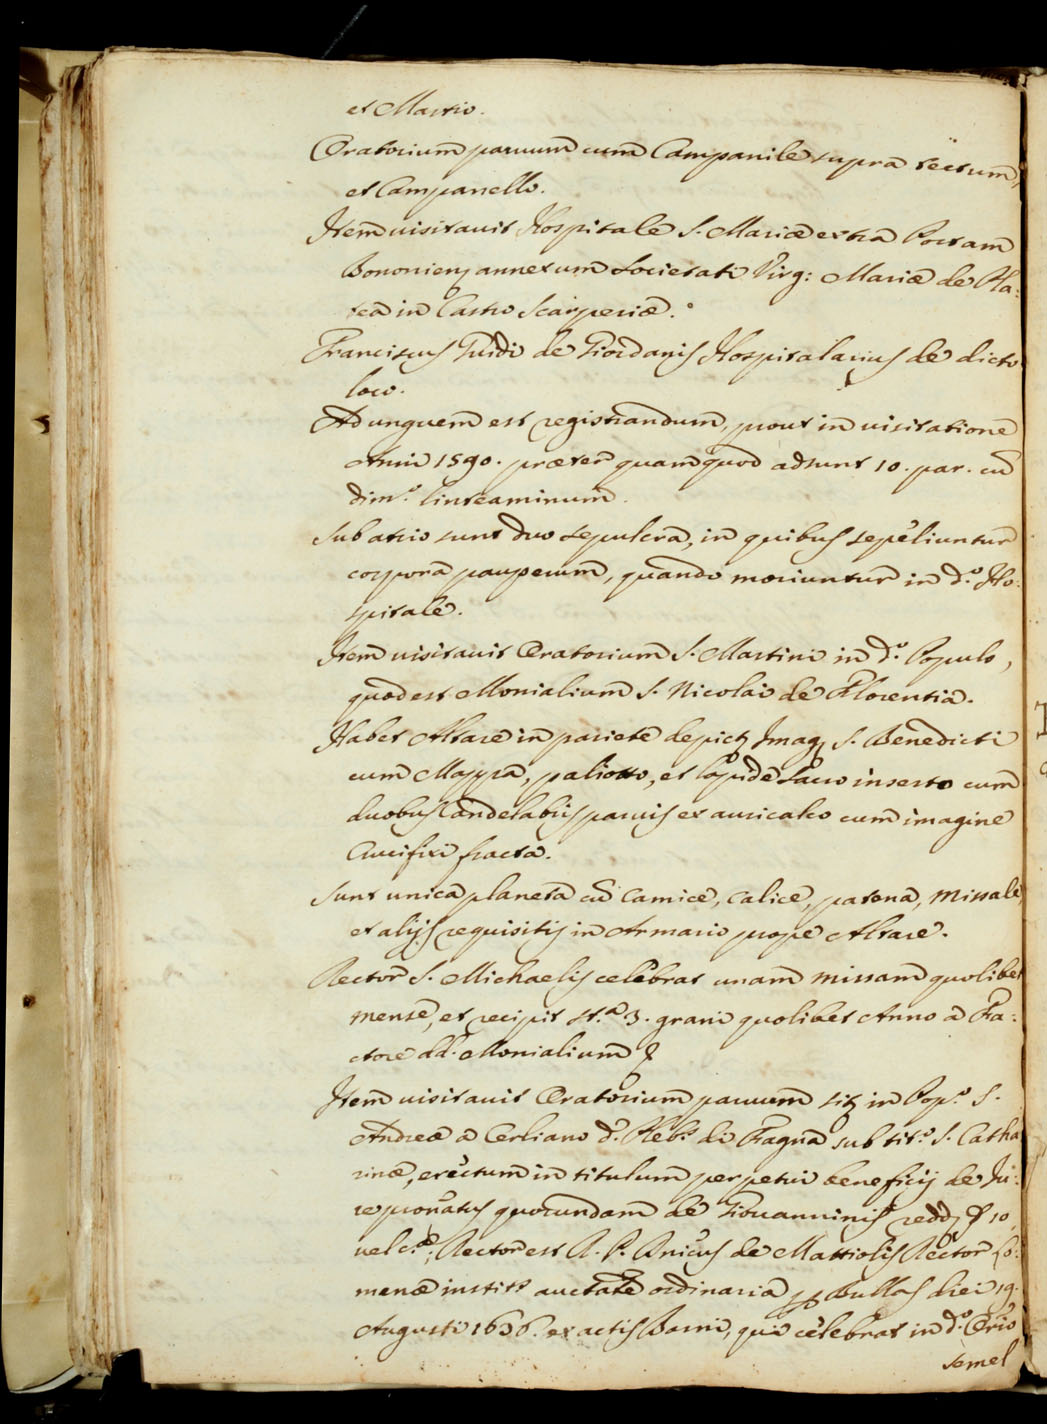 et Martio.
Oratorium paruum cum Campanile supra tectum,
et Campanello.
Item uisitauit Hospitale S. Mariæ extra Portam
Bononiens annexum Societati Virg: Mariæ de Pla:
tea in Castro Scarperiæ.
Franciscus Guidi de Giordanis Hospitalarius de dicto
loco.
Ad unguem est registrandum, prout in uisitatione
Anni 1590. præter quam quod adsunt 10. par. cu
dim.º linteaminum.
Sub atrio sunt duo sepulcra, in quibus sepeliuntur
corpora pauperum, quando moriuntur in d.º Ho:
spitale.
Item uisitauit Oratorium S. Martini in d.º Populo,
quod est Monialium S. Nicolai de Florentia.
Habet Altare in pariete depict Imag S. Benedicti
cum Mappa, paliotto, et lapide sacro inserto cum
duobus Candelabris paruis ex auricalco cum imagine
Crucifixi fracta.
Sunt unica planeta cu camice, calice, patena, missale
et alijs requisitis in Armario prope Altare.
Rector S. Michaelis celebrat unam missam quolibet
mense, et recipit st.ª 3. grani quolibet Anno a Fa:
ctore dd. Monialium
Item uisitauit Oratorium paruum sit in Pop.º S.
Andreæ a Cerliano d. Pleb. di Fagna sub tit.º S. Catha
rinæ, erectum in titulum perpetui beneficij de Ju:
repronatus quorundam de Giouanninis redd 10,
uel c.ª; Rector est R. P. Bnicus de Mattiolis Rector Lo:
menæ instit auctate ordinaria Bullas diei 19.
Augusti 1636. ex actis Barni, qui celebrat in d.º Orio
semel